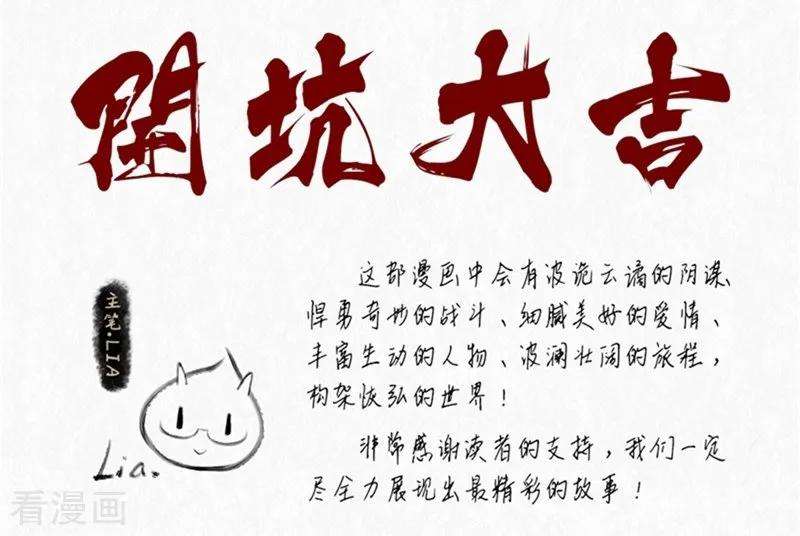 開坑大吉
主笔.LIA
Lia.
这部漫画中会有波诡云谲的阴谋、
悍勇奇妙的战斗、细腻美好的爱情、
丰富生动的人物、波澜壮阔的旅程，
构架恢弘的世界！
非常感谢读者的支持，我们一定
尽全力展现出最精彩的故事！
看漫画